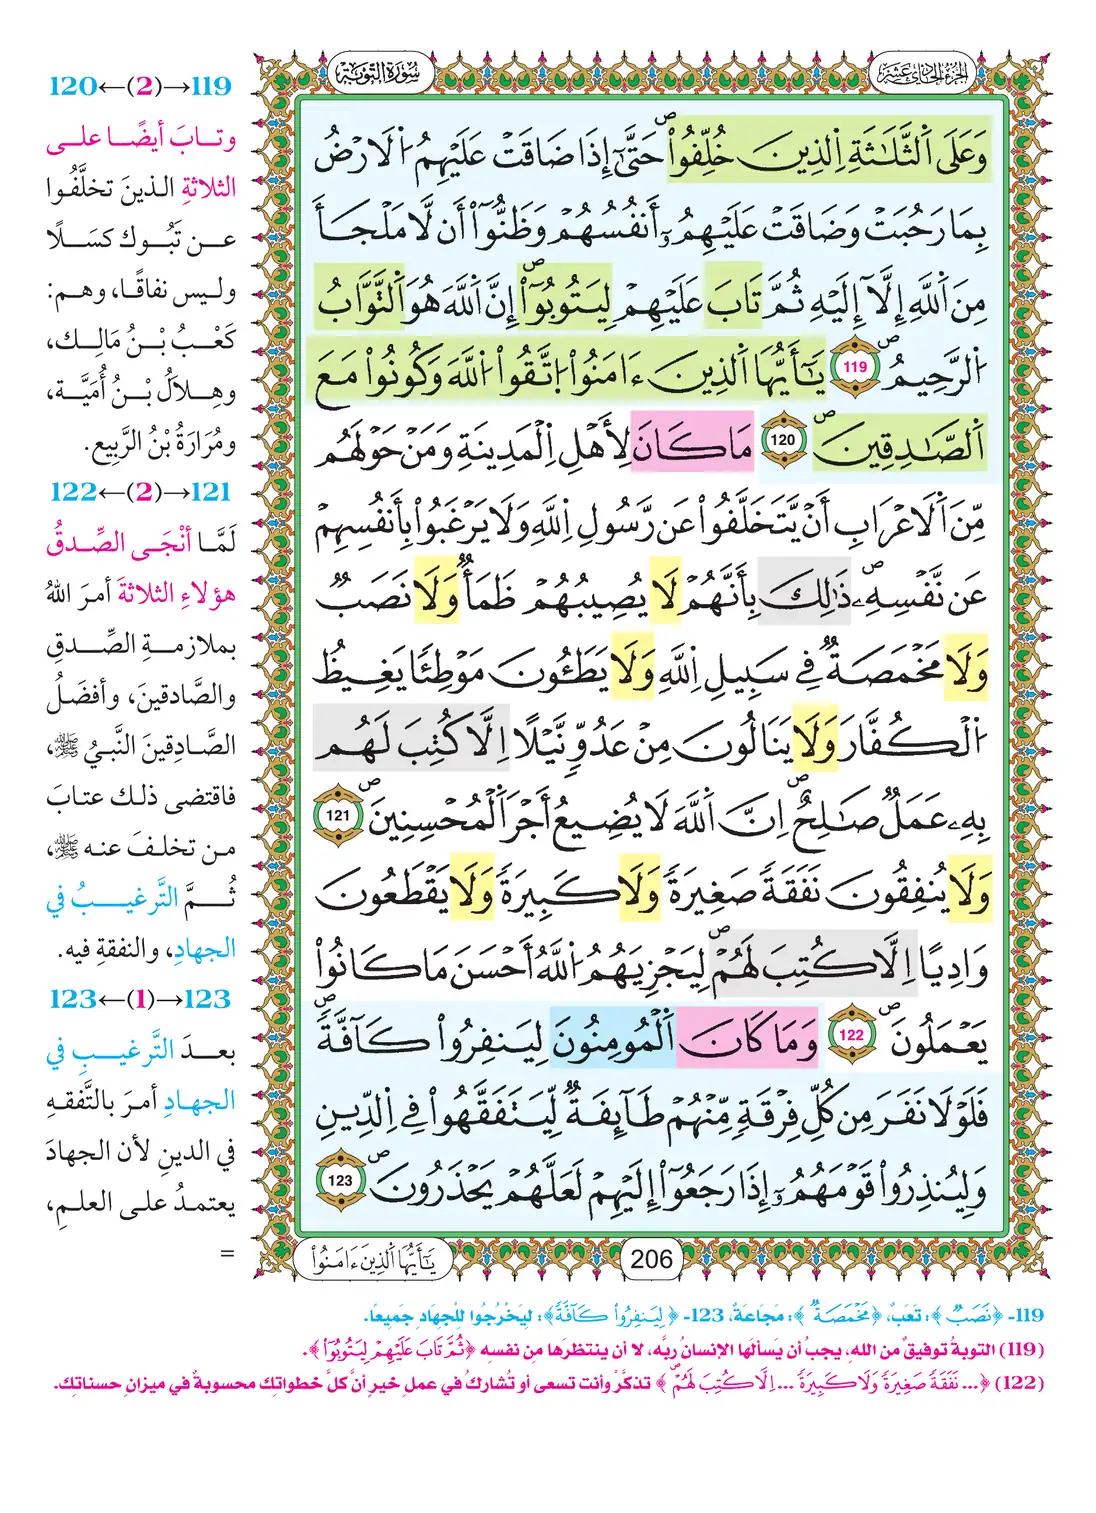 الجزء الحادي عشر
سورة التوبة
وَعَلَى اَلثَّلَٰثَةِ اِلذِينَ خُلِّفُواْ حَتَّىٰٓ إِذَا ضَاقَتْ عَلَيْهِمُ اُلَارْضُ
بِمَا رَحُبَتْ وَضَاقَتْ عَلَيْهِمُۥٓ أَنفُسُهُمْ وَظَنُّوٓاْ أَن لَّا مَلْجَأَ
مِنَ اَللَّهِ إِلَّآ إِلَيْهِ ثُمَّ تَابَ عَلَيْهِمْ لِيَتُوبُوٓاْ إِنَّ اَللَّهَ هُوَ اَلتَّوَّابُ
اُلرَّحِيمُ 119 يَٰٓأَيُّهَا اَلذِينَ ءَامَنُواْ اُتَّقُواْ اُللَّهَ وَكُونُواْ مَعَ
اَلصَّٰدِقِينَ 120 مَا كَانَ لِأَهْلِ اِلْمَدِينَةِ وَمَنْ حَوْلَهُم
مِّنَ اَلَاعْرَابِ أَنْ يَّتَخَلَّفُواْ عَن رَّسُولِ اِللَّهِ وَلَا يَرْغَبُواْ بِأَنفُسِهِمْ
عَن نَّفْسِهِۦ ذَٰلِكَ بِأَنَّهُمْ لَا يُصِيبُهُمْ ظَمَأٌ وَلَا نَصَبٌ
وَلَا مَخْمَصَةٌ فِي سَبِيلِ اِللَّهِ وَلَا يَطَـُٔونَ مَوْطِئًا يَغِيظُ
اُلْكُفَّارَ وَلَا يَنَالُونَ مِنْ عَدُوٍّ نَّيْلًا اِلَّا كُتِبَ لَهُم
بِهِۦ عَمَلٌ صَٰلِحٌ اِنَّ اَللَّهَ لَا يُضِيعُ أَجْرَ اَلْمُحْسِنِينَ 121
وَلَا يُنفِقُونَ نَفَقَةً صَغِيرَةً وَلَا كَبِيرَةً وَلَا يَقْطَعُونَ
وَادِيًا اِلَّا كُتِبَ لَهُمْ لِيَجْزِيَهُمُ اُللَّهُ أَحْسَنَ مَا كَانُواْ
يَعْمَلُونَ 122 وَمَا كَانَ اَلْمُومِنُونَ لِيَنفِرُواْ كَآفَّةً
فَلَوْلَا نَفَرَ مِن كُلِّ فِرْقَةٍ مِّنْهُمْ طَآئِفَةٌ لِّيَتَفَقَّهُواْ فِي اِلدِّينِ
وَلِيُنذِرُواْ قَوْمَهُمُۥٓ إِذَا رَجَعُوٓاْ إِلَيْهِمْ لَعَلَّهُمْ يَحْذَرُونَ 123
206
يَٰٓأَيُّهَا اَلذِينَ ءَامَنُواْ
119→(2)←120
وتابَ أيضًا على
الثلاثةِ الذينَ تخلَّفُوا
عن تَبُوك كسَلًا
وليس نفاقًا، وهم:
كَعْبُ بْنُ مَالِك،
وهِلَالُ بْنُ أُمَيَّة،
ومُرَارَةُ بْنُ الرَّبِيع.
121→(2)←122
لَمَّا أنْجَى الصِّدقُ
هؤلاءِ الثلاثةَ أمرَ اللهُ
بملازمةِ الصِّدقِ
والصَّادقينَ، وأفضَلُ
الصَّادِقِينَ النَّبيُ ﷺ،
فاقتضى ذلك عتابَ
من تخلفَ عنه ﷺ،
ثُمَّ التَّرغيبُ في
الجهادِ، والنفقةِ فيه.
123→(1)←123
بعدَ التَّرغيبِ في
الجهادِ أمرَ بالتَّفقهِ
في الدينِ لأن الجهادَ
يعتمدُ على العلمِ،
=
119- ﴿نَصَبٌ﴾: تَعَبٌ، ﴿مَخْمَصَةٌ﴾: مَجَاعَةٌ، 123- ﴿لِيَنفِرُواْ كَآفَّةً﴾: لِيَخْرُجُوا لِلْجِهَادِ جَمِيعًا.
(119) التوبةُ توفيقٌ من اللهِ، يجبُ أن يَسألَها الإنسانُ ربَّه، لا أن ينتظرَها مِن نفسِه ﴿ثُمَّ تَابَ عَلَيْهِمْ لِيَتُوبُوٓاْ﴾.
(122) ﴿... نَفَقَةً صَغِيرَةً وَلَا كَبِيرَةً ... اِلَّا كُتِبَ لَهُمْ﴾ تذكَّرْ وأنت تسعى أو تُشاركُ في عملِ خيرٍ أنَّ كلَّ خطواتِك محسوبةٌ في ميزانِ حسناتِك.